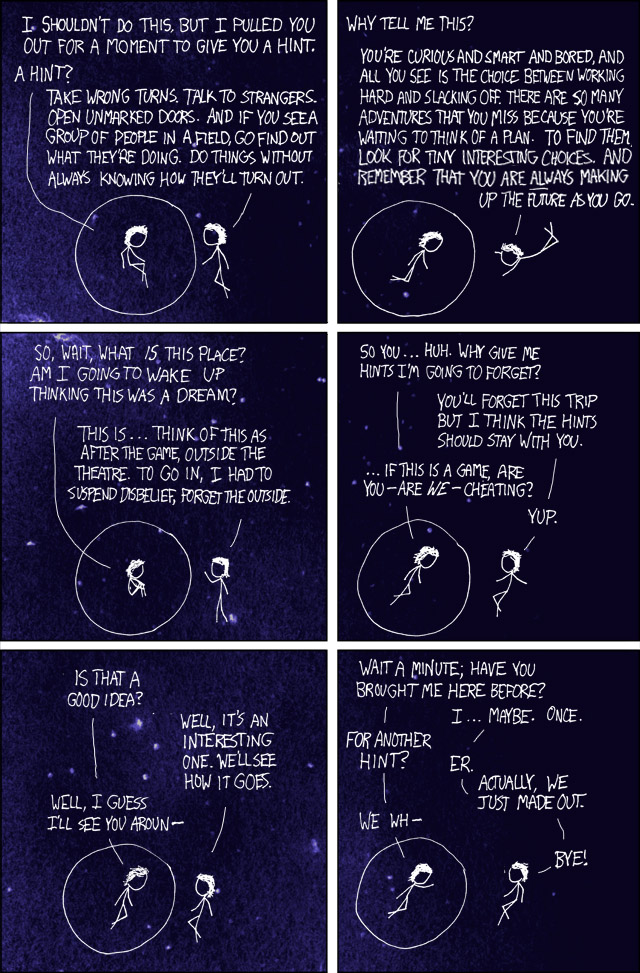 I SHOULDN'T DO THIS, BUT I PULLED YOU
OUT FOR A MOMENT TO GIVE YOU A HINT.
A HINT?
TAKE WRONG TURNS. TALK TO STRANGERS.
OPEN UNMARKED DOORS. AND IF YOU SEE A
GROUP OF PEOPLE IN A FIELD, GO FIND OUT
WHAT THEY'RE DOING. DO THINGS WITHOUT
ALWAYS KNOWING HOW THEY'LL TURN OUT.
WHY TELL ME THIS?
YOU'RE CURIOUS AND SMART AND BORED, AND
ALL YOU SEE IS THE CHOICE BETWEEN WORKING
HARD AND SLACKING OFF. THERE ARE SO MANY
ADVENTURES THAT YOU MISS BECAUSE YOU'RE
WAITING TO THINK OF A PLAN. TO FIND THEM,
LOOK FOR TINY INTERESTING CHOICES. AND
REMEMBER THAT YOU ARE ALWAYS MAKING
UP THE FUTURE AS YOU GO.
SO, WAIT, WHAT IS THIS PLACE?
AM I GOING TO WAKE UP
THINKING THIS WAS A DREAM?
THIS IS... THINK OF THIS AS
AFTER THE GAME, OUTSIDE THE
THEATRE. TO GO IN, I HAD TO
SUSPEND DISBELIEF, FORGET THE OUTSIDE.
SO YOU... HUH. WHY GIVE ME
HINTS I'M GOING TO FORGET?
YOU'LL FORGET THIS TRIP
BUT I THINK THE HINTS
SHOULD STAY WITH YOU.
...IF THIS IS A GAME, ARE
YOU—ARE WE—CHEATING?
YUP.
IS THAT A
GOOD IDEA?
WELL, IT'S AN
INTERESTING
ONE. WE'LL SEE
HOW IT GOES.
WELL, I GUESS
I'LL SEE YOU AROUN—
WAIT A MINUTE; HAVE YOU
BROUGHT ME HERE BEFORE?
I... MAYBE. ONCE.
FOR ANOTHER
HINT?
ER.
ACTUALLY, WE
JUST MADE OUT.
WE WH—
BYE!